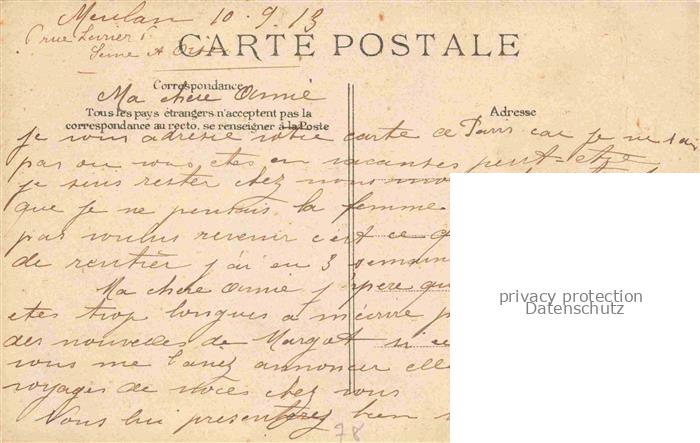 Meulan 10.9.13
6 rue
Seine et Oise
CARTE POSTALE
Correspondance
Ma chère Amie
Tous les pays étrangers n'acceptent pas la
correspondance au recto, se renseigner à la Poste
Adresse
je vous adresse votre carte a Paris car je ne sai
pas ou vous etes en vacanses peut-etre
je suis rester chez nous
que je ne pouvais la femme
pas voulus revenir c'est ce q
de rentier j'ai eu 3 semain
Ma chère Amie j'espere qu
etes trop longues a m'ecrire p
des nouvelles de Margot si ce
vous me l'avez annoncer elle
voyages de noces chez vous
Vous lui presenterez bien
78
privacy protection
Datenschutz